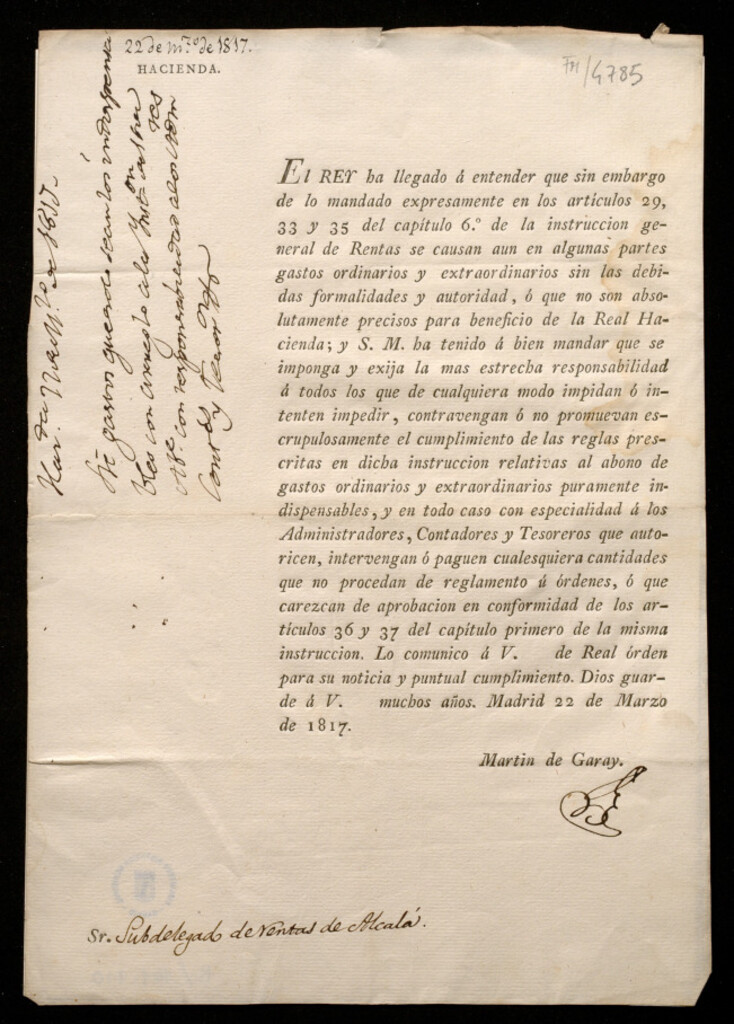 22 de m.zo de 1817.
HACIENDA.
FM/4785
El REY ha llegado á entender que sin embargo
de lo mandado expresamente en los artículos 29,
33 y 35 del capítulo 6.º de la instruccion ge-
neral de Rentas se causan aun en algunas partes
gastos ordinarios y extraordinarios sin las debi-
das formalidades y autoridad, ó que no son abso-
lutamente precisos para beneficio de la Real Ha-
cienda; y S. M. ha tenido á bien mandar que se
imponga y exija la mas estrecha responsabilidad
á todos los que de cualquiera modo impidan ó in-
tenten impedir, contravengan ó no promuevan es-
crupulosamente el cumplimiento de las reglas pres-
critas en dicha instruccion relativas al abono de
gastos ordinarios y extraordinarios puramente in-
dispensables, y en todo caso con especialidad á los
Administradores, Contadores y Tesoreros que auto-
ricen, intervengan ó paguen cualesquiera cantidades
que no procedan de reglamento ú órdenes, ó que
carezcan de aprobacion en conformidad de los ar-
tículos 36 y 37 del capítulo primero de la misma
instruccion. Lo comunico á V. de Real órden
para su noticia y puntual cumplimiento. Dios guar-
de á V. muchos años. Madrid 22 de Marzo
de 1817.
Martin de Garay.
Sr. Subdelegado de rentas de Alcalá.
de 1817
gastos que no sean los indispensa
bles con arreglo a la
con responsabilidad a los Adm